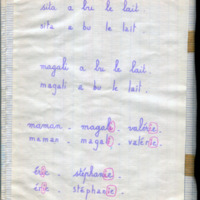 sita a bu le lait.
sita a bu le lait.
magali a bu le lait.
magali a bu le lait.
maman - magali - valérie
maman - magali - valérie
éric - stéphanie
éric - stéphanie